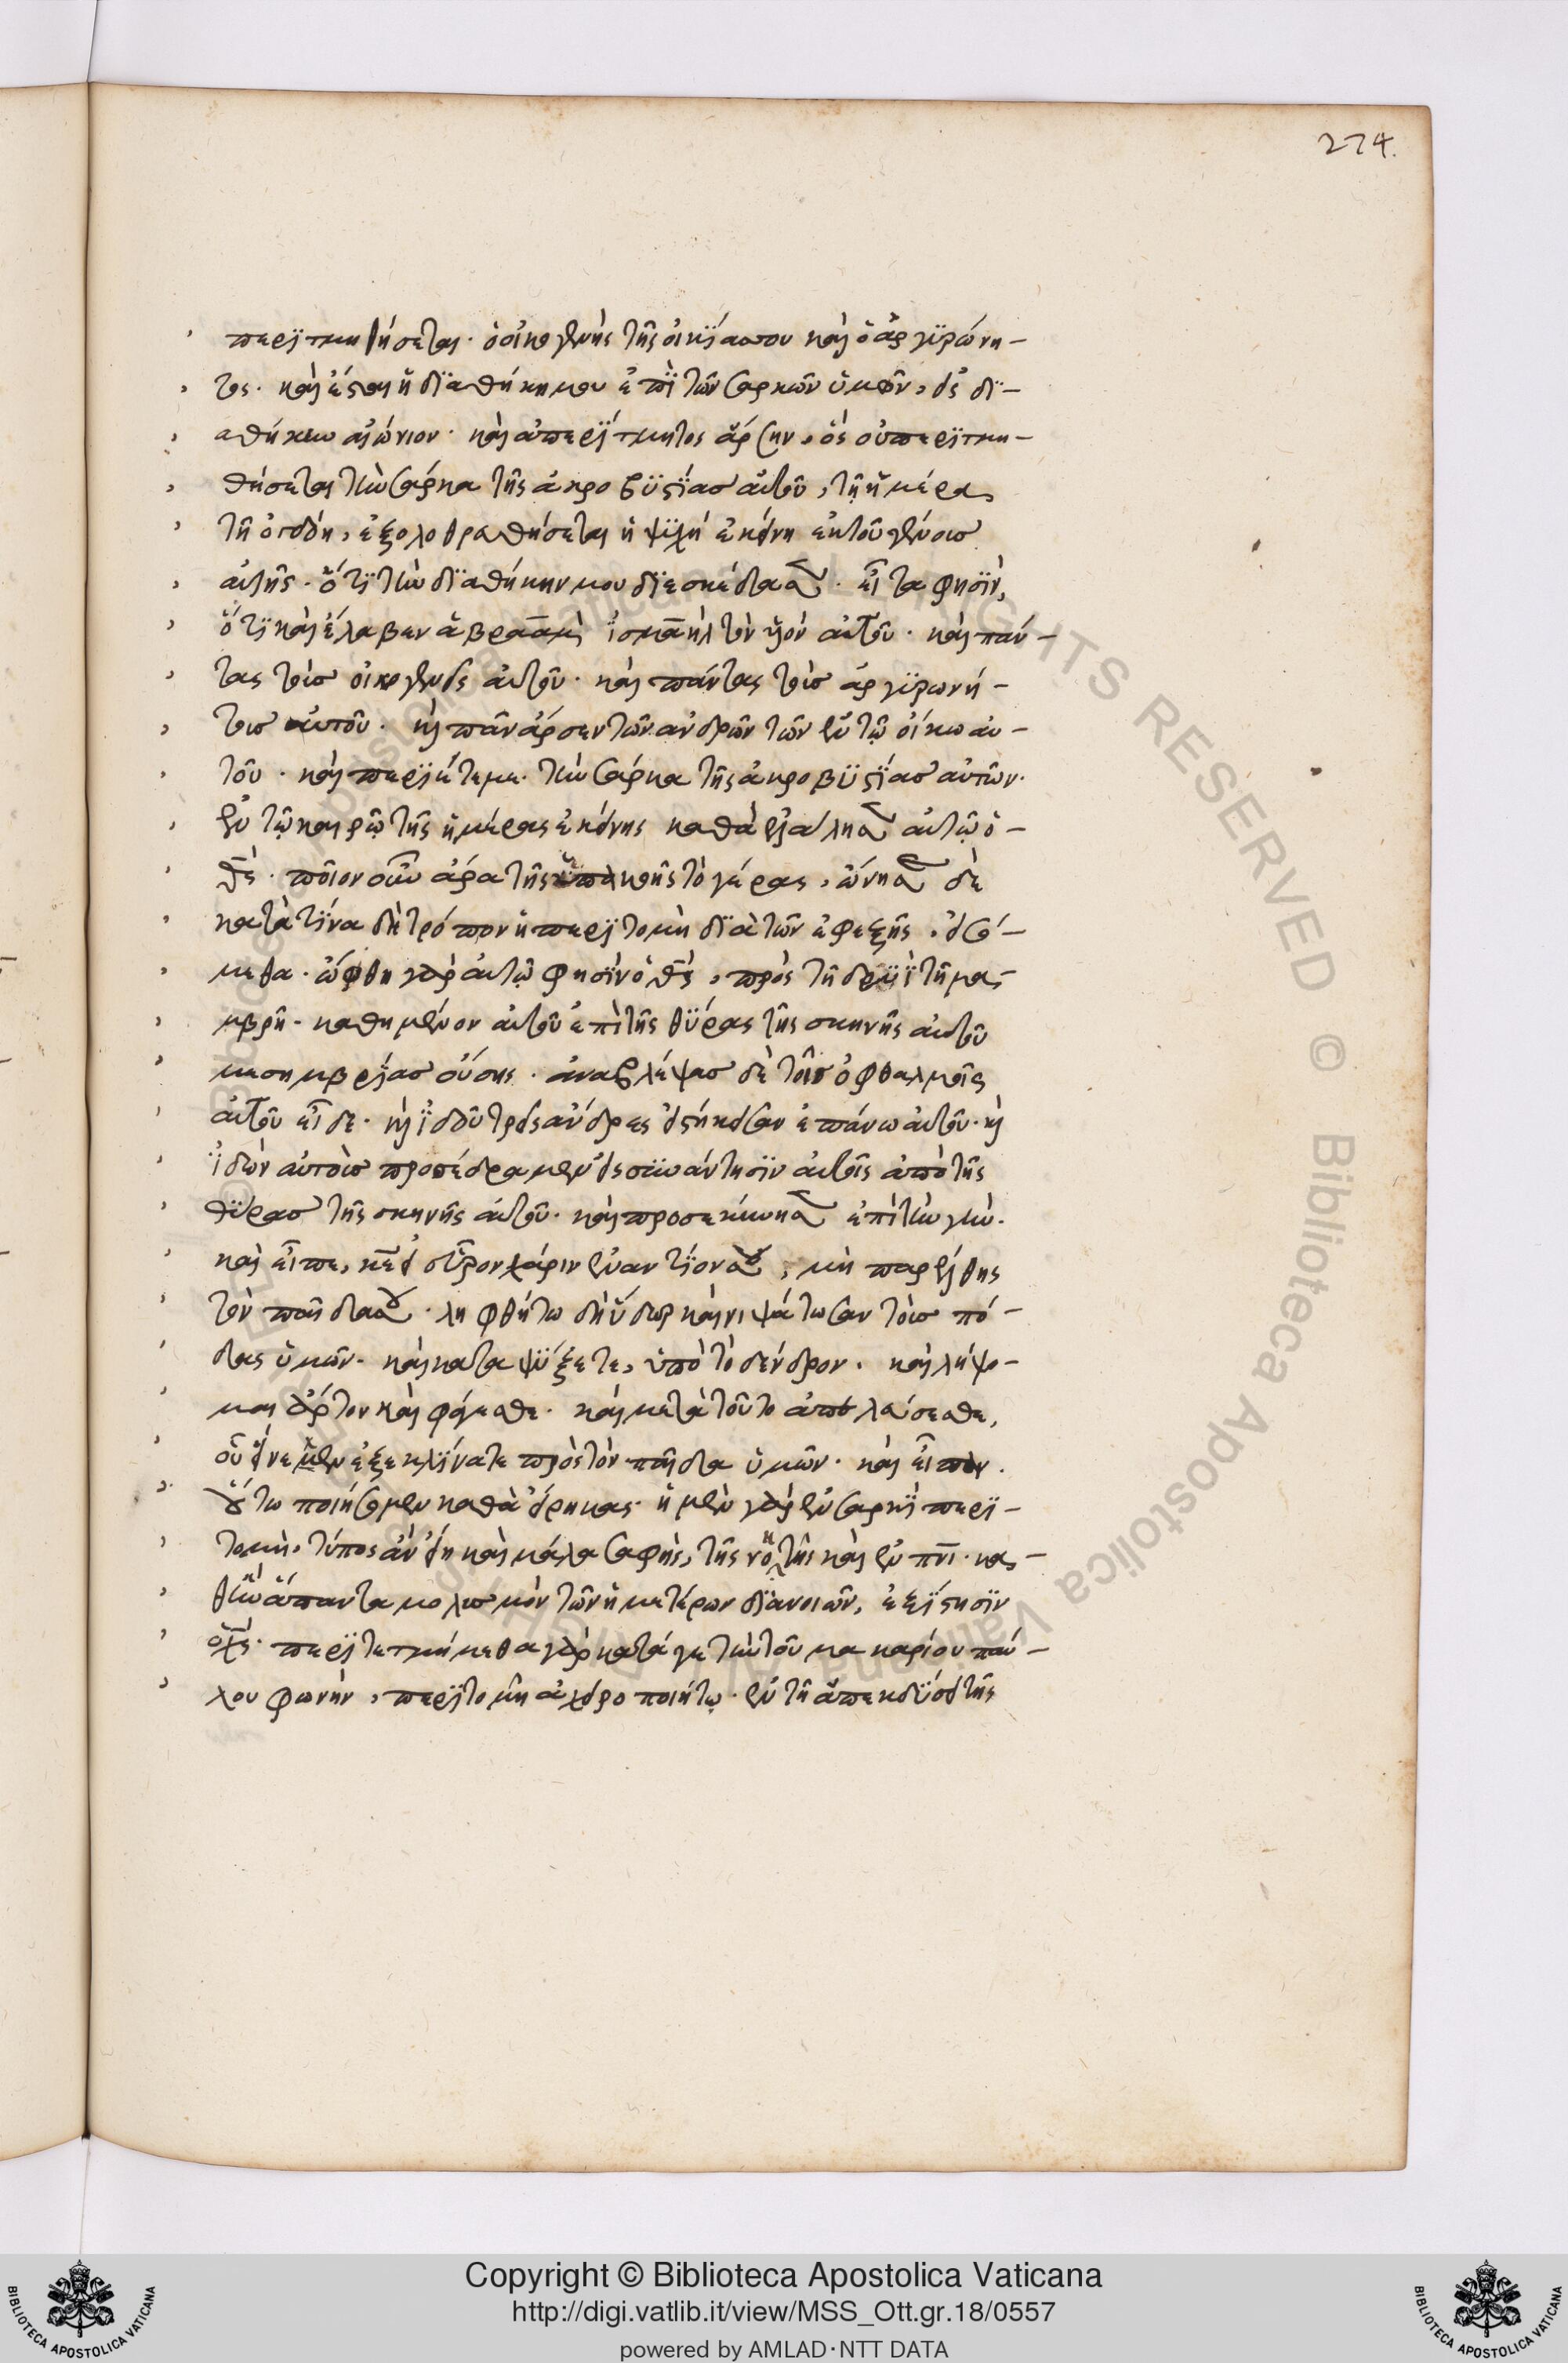 274.
περϊτμηθήσεται· ὁ οἰκογενὴς τῆς οἰκϊίας σου καὶ ὁ ἀργϋρώνη-
τος· καὶ ἔσται ἡ δϊαθήκη μου ἐπῒ τῶν σαρκῶν ὑμῶν, εἰς δϊ-
αθήκην αἰώνιον· καὶ ἀπερΐτμητος ἄρσην, ὃς οὐ περϊτμη-
θήσεται τὴν σάρκα τῆς ἀκροβϋστΐας αὐτοῦ, τῇ ἡμέρᾳ
τῇ ὀγδόῃ, ἐξολοθρευθήσεται ἡ ψϋχὴ ἐκείνη ἐκ τοῦ γένους
αὐτῆς· ὅτϊ τὴν δϊαθήκην μου δϊεσκέδασε· εἶτα φησῒν,
ὅτϊ καὶ ἔλαβεν ἁβραὰμ ϊσμαὴλ τὸν υἱὸν αὐτοῦ· καὶ πάν-
τας τοὺς οἰκογενεῖς αὐτοῦ· καὶ πάντας τοὺς ἀργϋρωνή-
τους αὐτοῦ· κỳ πᾶν ἄρσεν τῶν ἀνδρῶν τῶν ἐν τῷ οἴκῳ αὐ-
τοῦ· καὶ περϊέτεμε τὴν σάρκα τῆς ἀκροβϋστΐας αὐτῶν·
ἐν τῷ καιρῷ τῆς ἡμέρας ἐκείνης καθὰ ἐλάλησεν αὐτῷ ὁ
θς· ποῖον οὖν ἄρα τῆς ὑπακοῆς τὸ γέρας, ὤνησε δὲ
κατὰ τΐνα δὴ τρόπον ἡ περϊτομὴ δϊὰ τῶν ἐφεξῆς εἰσό-
μεθα· ὤφθη γὰρ αὐτῷ φησῒν ὁ θς, πρὸς τῇ δρυῒ τῇ μα-
μβρῇ· καθημένου αὐτοῦ ἐπὶ τῆς θϋρας τῆς σκηνῆς αὐτοῦ
μεσημβρΐας οὔσης· ἀναβλέψας δὲ τοῖς ὀφθαλμοῖς
αὐτοῦ εἶδε· κỳ ϊδοὺ τρεῖς ἄνδρες εἱστήκεισαν ἐπάνω αὐτοῦ· κỳ
ϊδὼν αὐτοὺς προσέδραμεν εἰς συνάντησϊν αὐτοῖς ἀπὸ τῆς
θϋρας τῆς σκηνῆς αὐτοῦ· καὶ προσεκύνησεν ἐπὶ τὴν γῆν·
καὶ εἶπε, κε εἰ εὗρον χάριν ἐναντΐον σου, μὴ παρέλθῃς
τὸν παῖδα σου· ληφθήτω δὴ ὕδωρ καὶ νιψάτωσαν τοὺς πό-
δας ὑμῶν· καὶ καταψΰξετε, ὑπὸ τὸ δένδρον· καὶ λήψο-
μαι ἄρτον καὶ φάγεσθε· καὶ μετὰ τοῦτο ἀπελεύσεσθε,
οὗ εἵνεκεν ἐξεκλΐνατε πρὸς τὸν παῖδα ὑμῶν· καὶ εἶπον·
οὕτω ποιήσωμεν καθὰ εἴρηκας· ἡ μὲν γὰρ ἐν σαρκῒ περϊ-
τομὴ, τύπος ἂν εἴη καὶ μάλα σαφὴς, τῆς νοητῆς καὶ ἐν πνι· κα-
θ' ἣν ἅπαντα μολυσμὸν τῶν ἡμετέρων δϊανοιῶν, ἐξΐστησϊν
ὁ χς· περϊτετμήμεθα γὰρ κατά γε τὴν τοῦ μακαρίου παύ-
λου φωνὴν, περϊτομῇ ἀχειροποιήτῳ· ἐν τῇ ἀπεκδύσει τῆς
ALL RIGHTS RESERVED © Biblioteca Apostolica Vaticana
Copyright © Biblioteca Apostolica Vaticana
http://digi.vatlib.it/view/MSS_Ott.gr.18/0557
powered by AMLAD·NTT DATA
BIBLIOTECA APOSTOLICA VATICANA
BIBLIOTECA APOSTOLICA VATICANA